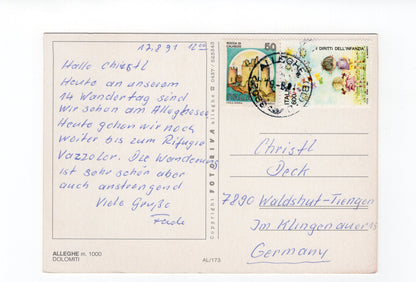 12.8.91 12⁰⁰
Hallo Christl
Heute an unserem
14 Wandertag sind
Wir schon am Alleghesee
Heute gehen wir noch
weiter bis zum Rifugio
Vazzoler. Die Wanderung
ist sehr schön aber
auch anstrengend
Viele Grüße
ALLEGHE m. 1000
DOLOMITI
Copyright FOTORIVA alleghe
AL/173
ROCCA DI
CALASCIO
50
ALLEGHE
I DIRITTI DELL'INFANZIA
ITALIA
Christl
Deck
7890 Waldshut-Tiengen
Im Klingenauer 15
Germany